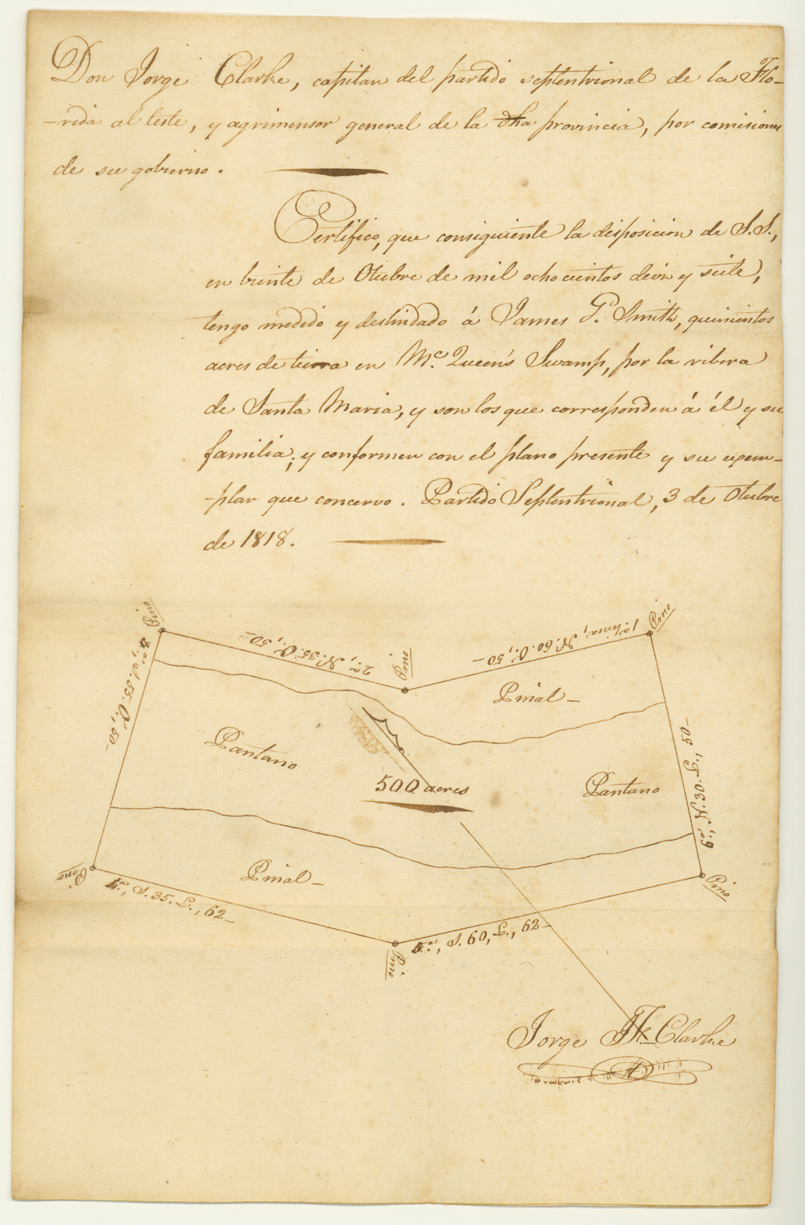 Don Jorge Clarke, capitan del partido septentrional de la Flo-
-rida al leste, y agrimensor general de la dha provincia, por comisiones
de su gobierno.
Certifico, que consiguiente la disposicion de S.S.,
en beinte de Otubre de mil ocho cientos deiz y seite,
tengo medido y deslindado á James P. Smith, quinientos
acres de tierra en Mc. Queen's Swamp, por la ribera
de Santa Maria, y son los que corresponden á él y su
familia; y conformen con el plano presente y su exem-
-plar que concervo. Partido Septentrional, 3 de Otubre
de 1818.
Pino
2a., N. 35. O., 50-
Pino
1a. linia, N. 60. O., 50-
Pino
3a., S. 55. O., 50-
Pinal-
Pantano
500 acres
Pantano
6a., N. 30. L., 50-
Pino
4a., S. 35. L., 62-
Pinal-
Pino
5a., S. 60, L., 62-
Pino
Jorge Clarke